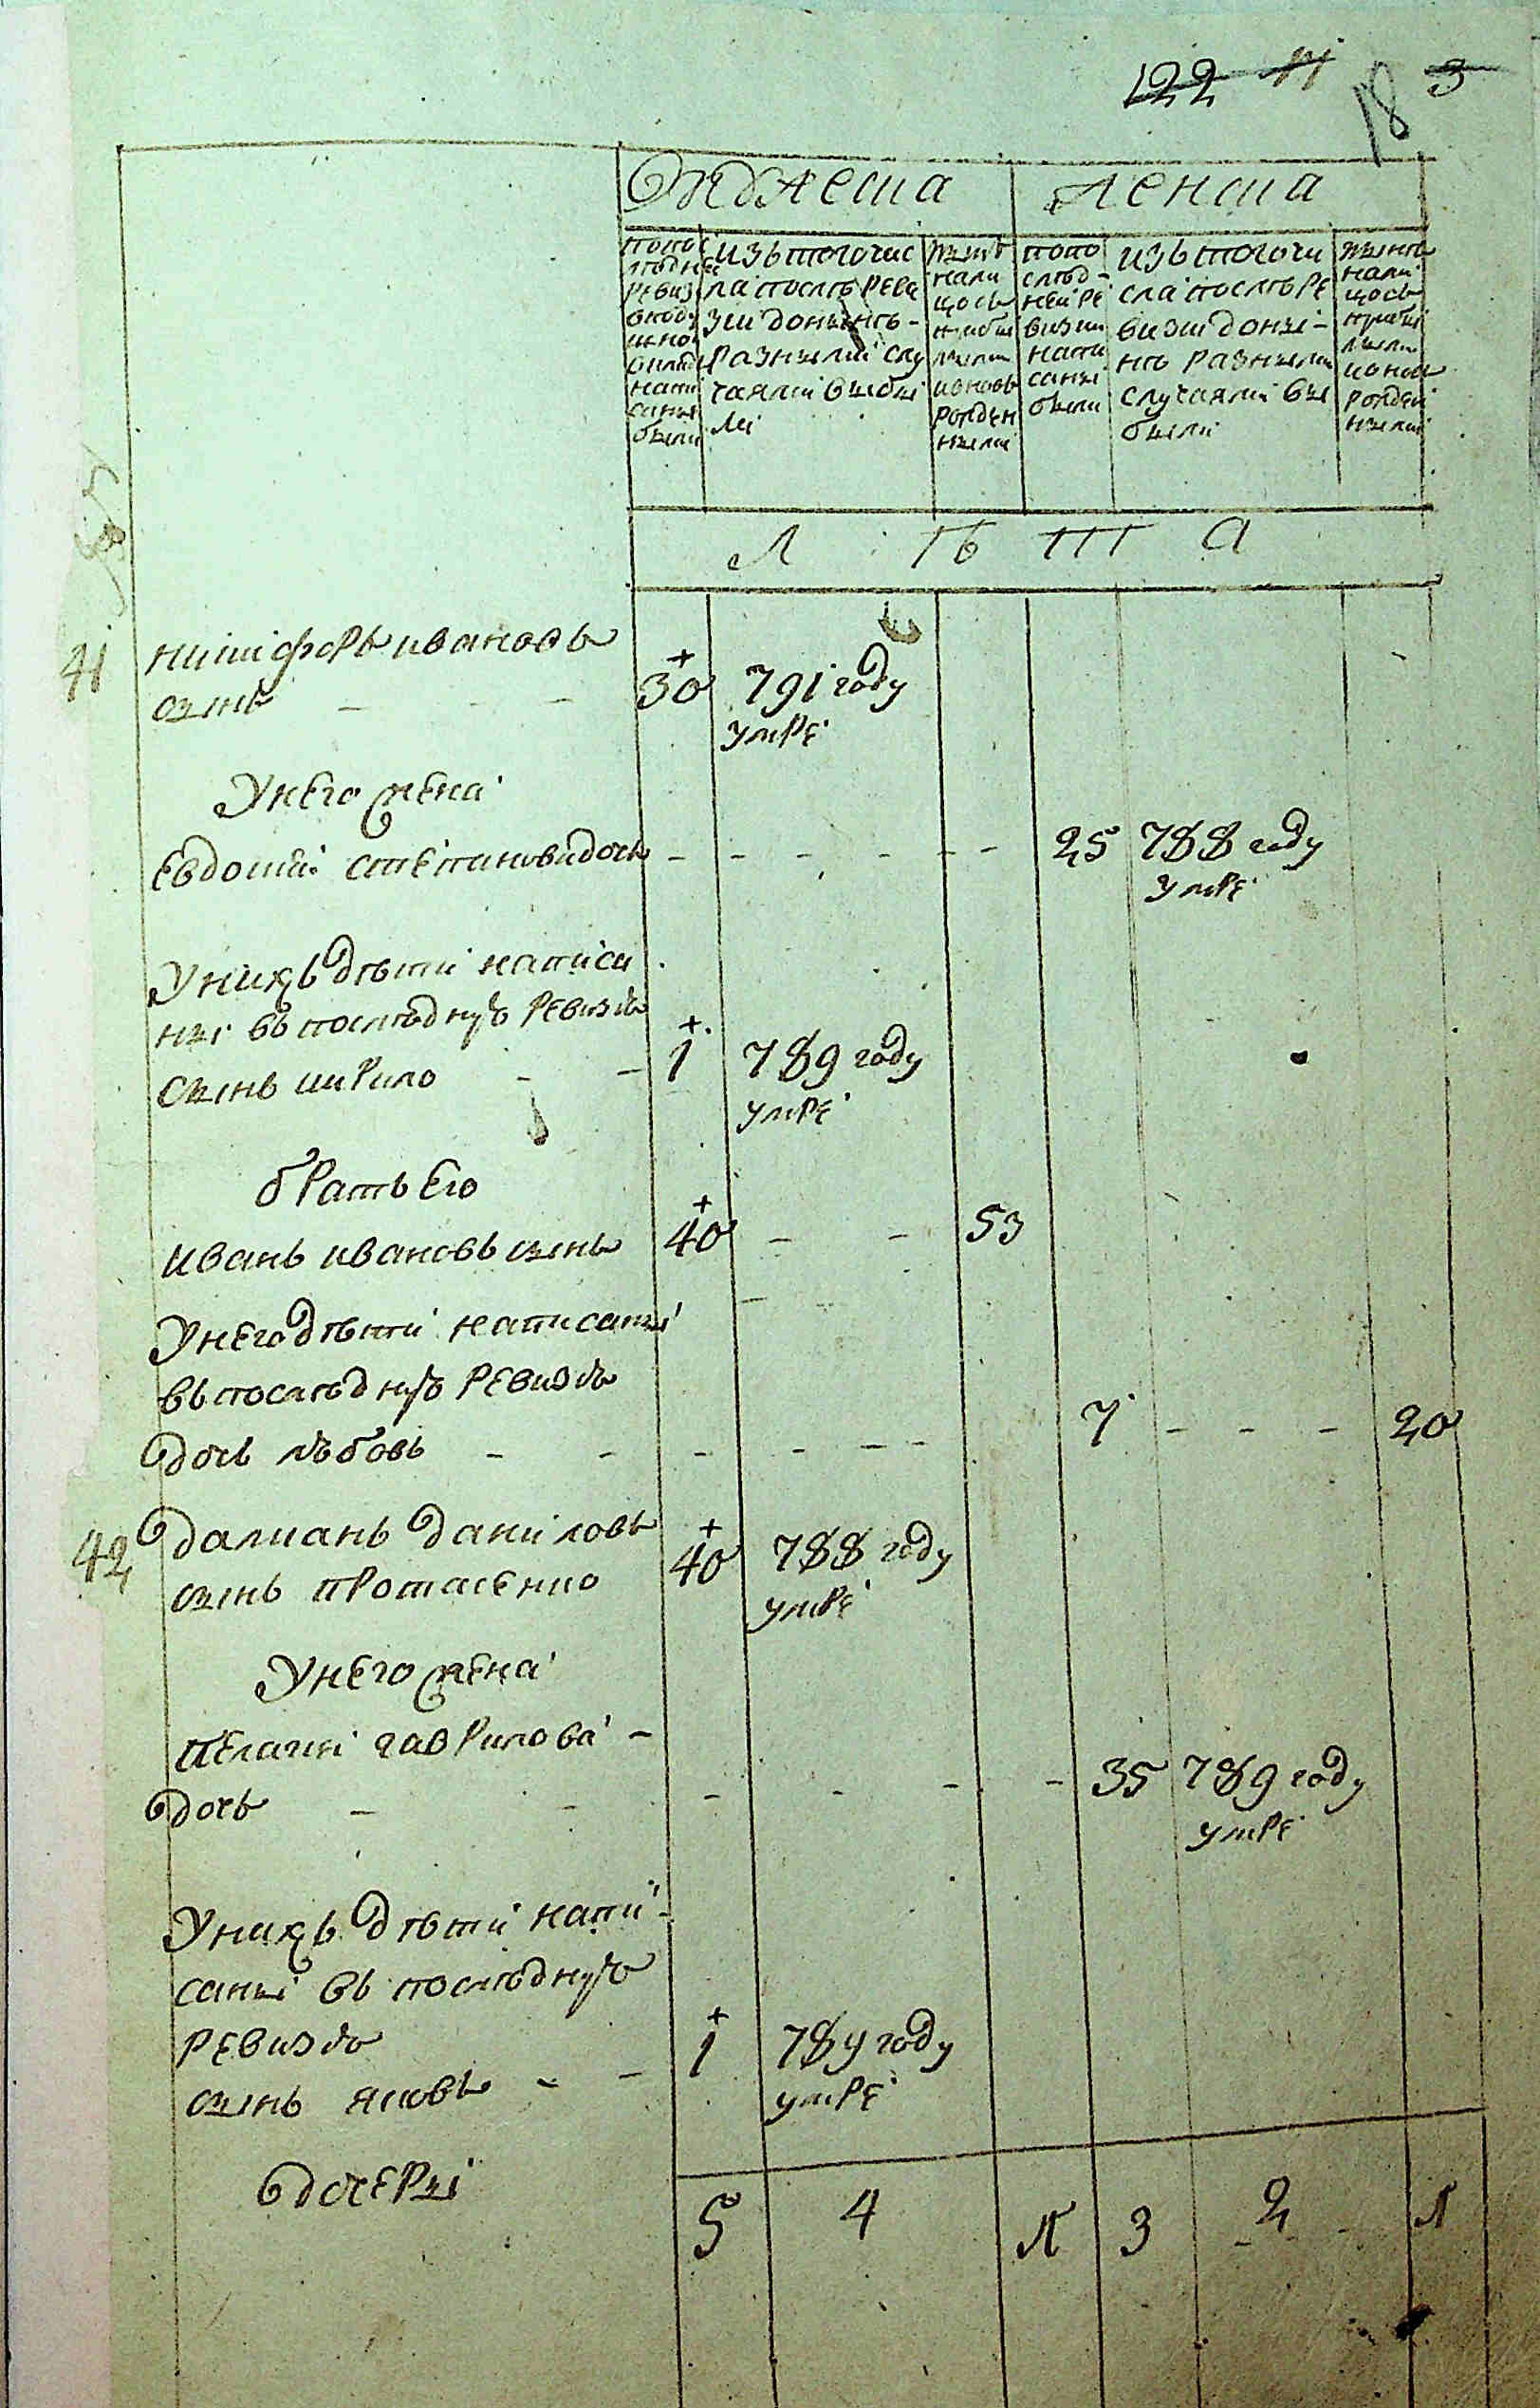 122 41 18 3
Мужеска женска
попос
ледней
ревизі
изътогочис
ла послѣ реви
зіи донынѣ -
разными слу
чаями выбы
лі
нынѣ
нали
цось
прибы
лыми
ивновь
рожден
ными
попо
слѣд-
ней ре
визіи
напи
саны
были
изътогочи
сла послѣ ре
визіи доны-
нѣ разными
случаями вы
были
нынѣ
нали
цось
прибы
лыми
ивновь
рожден
ными
Л Ѣ Т А
41 никифоръ ивановъ
сынъ - - 30 791 году
умре
Унего жена
Евдокия степановадочь - - - - - - 25 788 году
умре
Унихъ дѣти написа
ны въ послѣдную ревизію
сынъ кирило - - 1 789 году
умре
братъ Его
иванъ ивановъ сынъ 40 - - 53
Унего дѣти написаны
въ послѣдную ревизію
дочь любовь - - - - - - 7 - - - 20
42 дамианъ даниловъ
сынъ протасенко 40 788 году
умре
Унего жена
пелагия гаврилова -
дочь - - - - - - 35 789 году
умре
Унихъ дѣти напи-
саны въ послѣдную
ревизію
сынъ яковъ - - 1 789 году
умре
дочеры
5 4 1 3 2 1